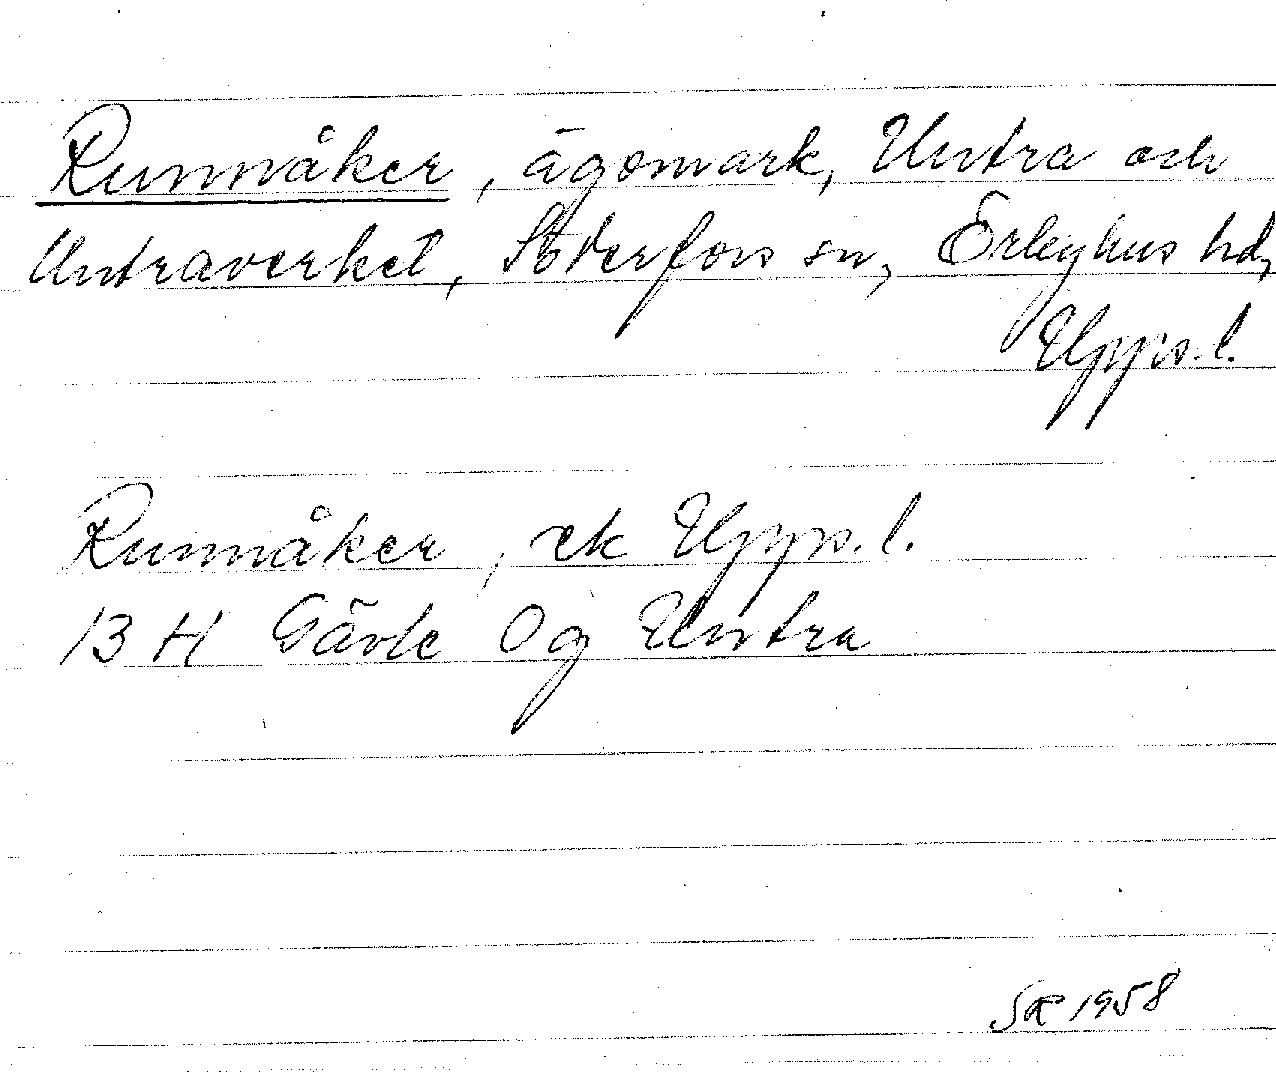 Runnåker, ägomark, Untra och
Untraverket, Söderfors sn, Örbyhus hd,
Upps. l.
Runnåker, ek Upps. l.
13 H Gävle Og Untra
1958